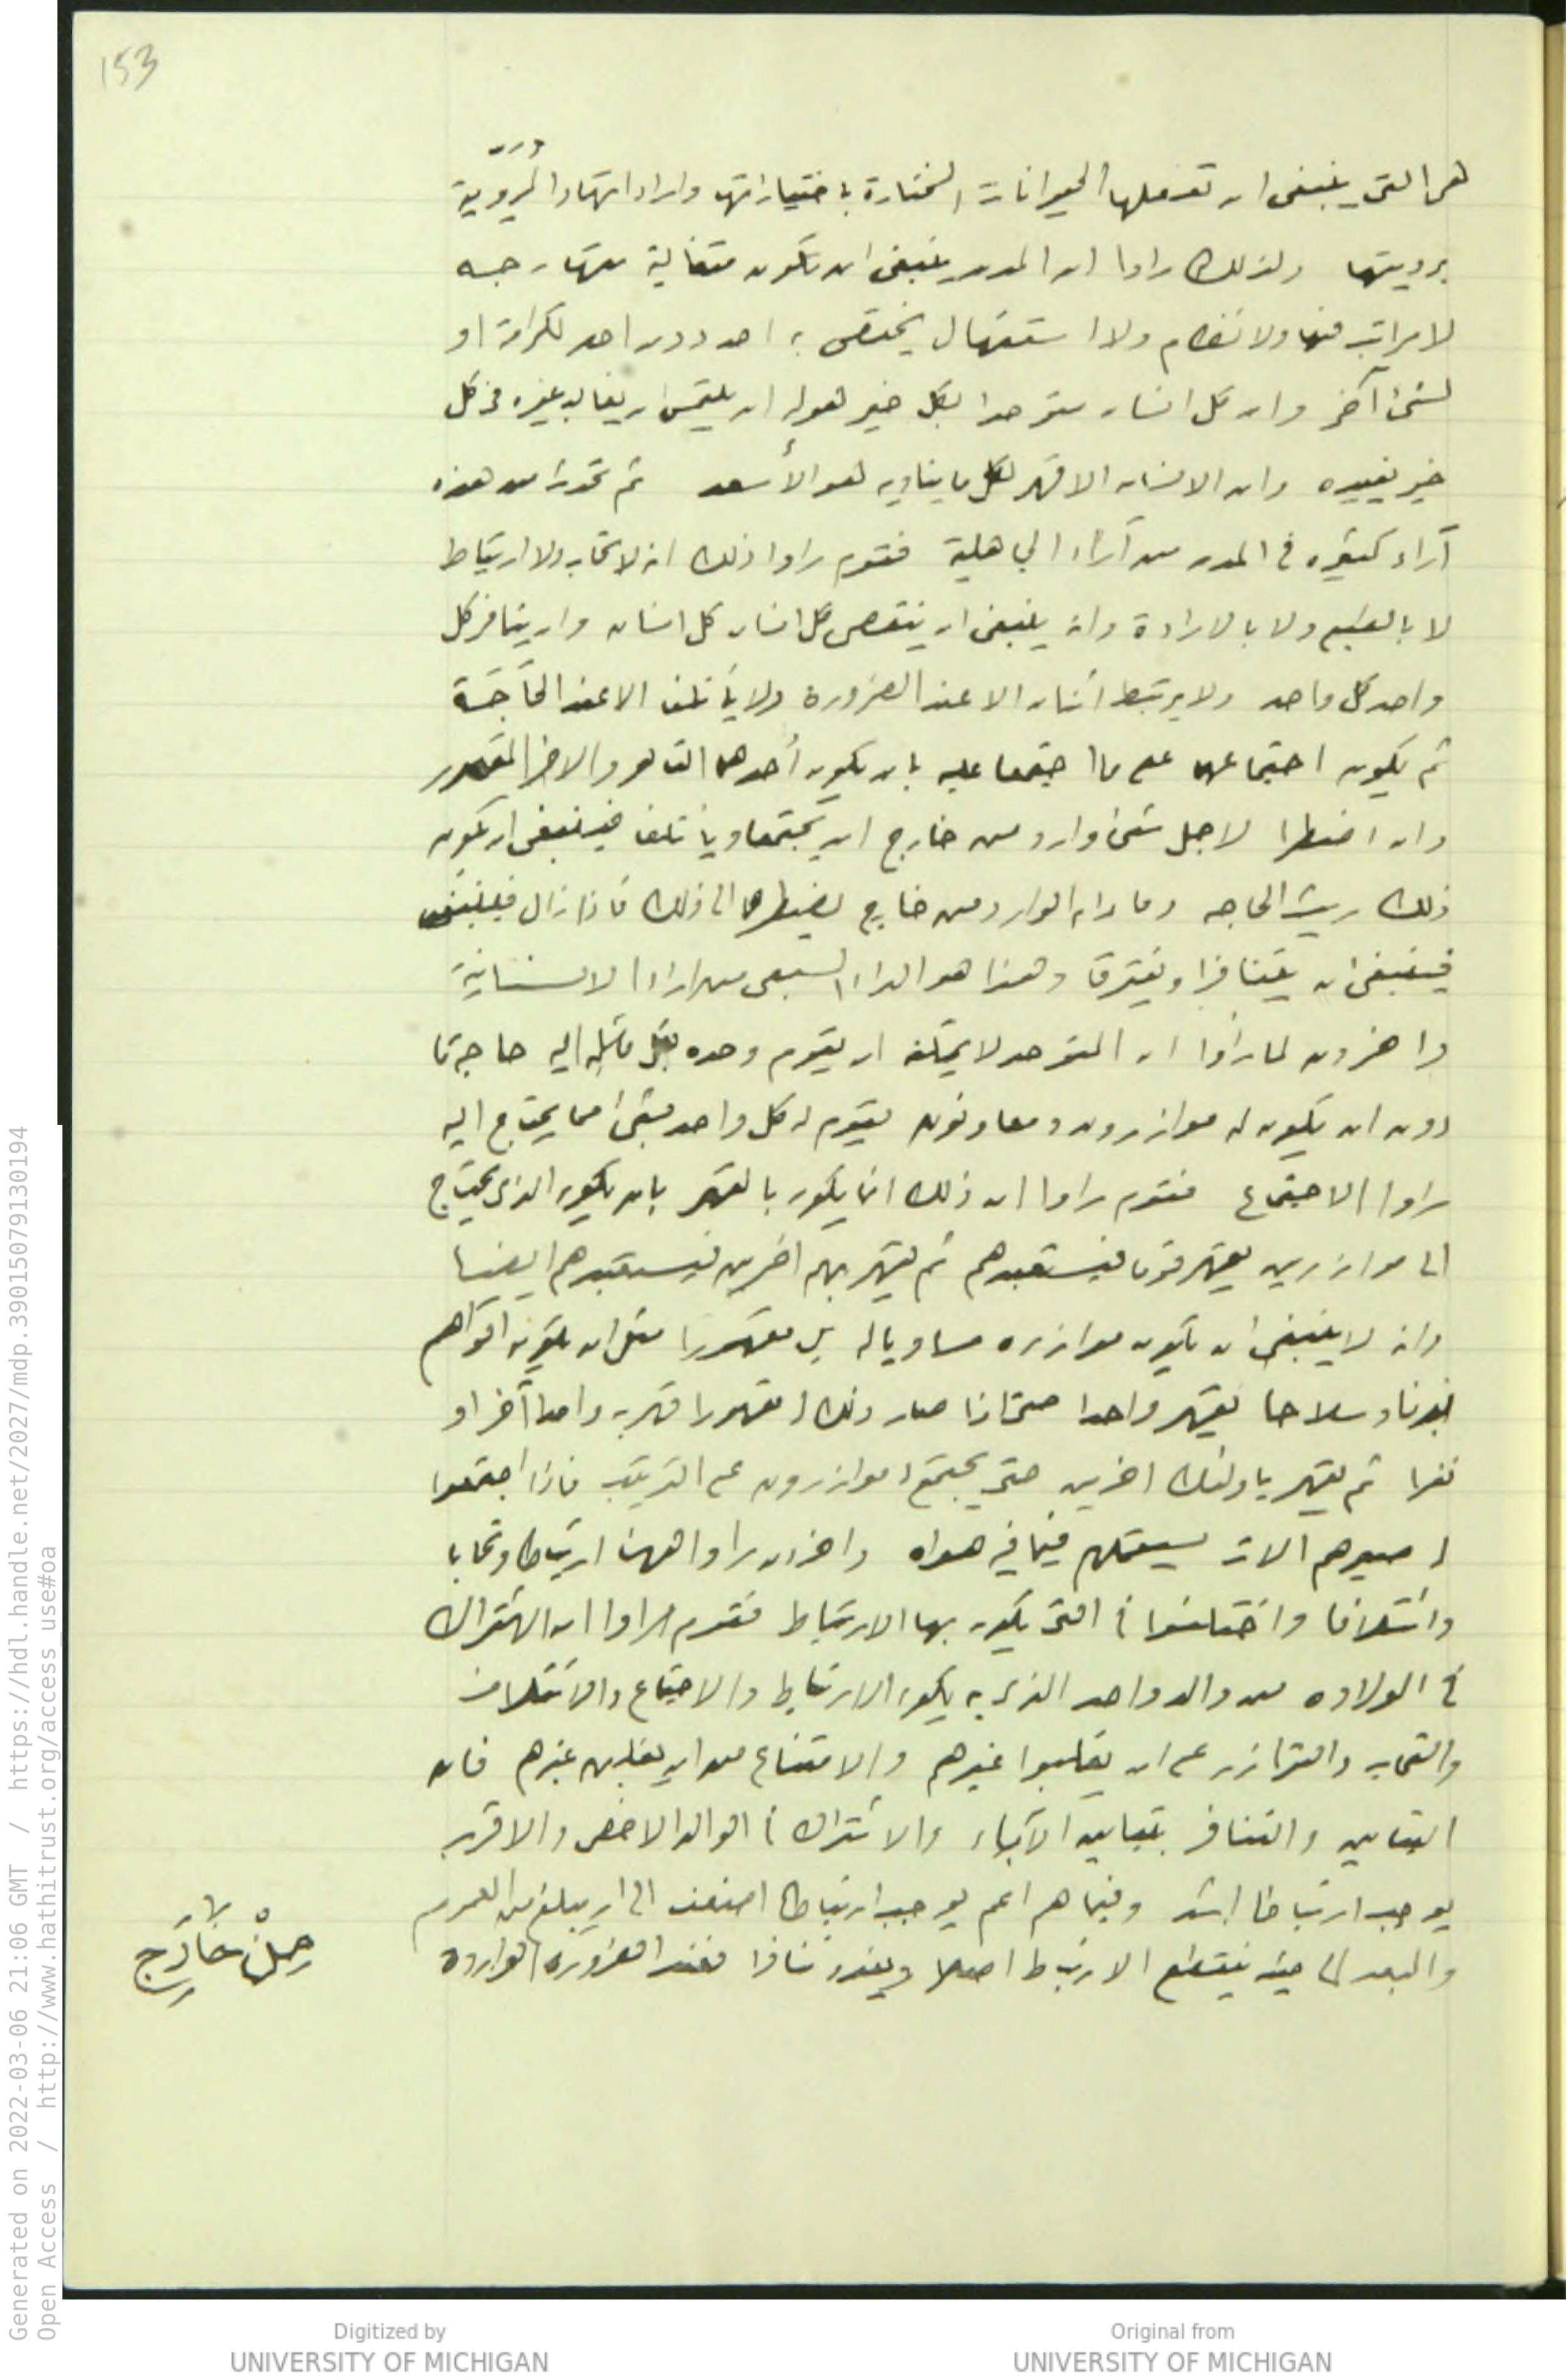 153
هى التى ينبغى ان تفعلها الحيوانات المختارة باختياراتها واراداتها والمُرَوِّية
برويتها ولذلك راوا ان المدن ينبغى ان تكون متغالبة متهارجه
لا مراتب فيها ولا نظام ولا استئهال يختص به احد دون احد لكرامة او
لشئ آخر وان كل انسان متوحدا بكل خير هو له ان يلتمس ان يغالب غيره فى كل
خير يفيده وان الانسان الاقهر لكل ما يناويه هو الأسعد ثم تحدث من هذه
آراء كثيره فى المدن من آراء الجاهلية فقوم راوا ذلك انه لا تحاب ولا ارتباط
لا بالطبع ولا بالارادة وانه ينبغى ان ينتقص كل انسان كل انسان وان ينافر كل
واحد كل واحد ولا يرتبط اثنان الا عند الضرورة ولا يأتلفا الا عند الحاجة
ثم يكون اجتماعهما على ما اجتمعا عليه بان يكون أحدهما القاهر والاخر المقهور
وان اضطرا لاجل شئ وارد من خارج ان يجتمعا ويأتلفا فينبغى ان يكون
ذلك ريث الحاجه وما دام الوارد من خارج يضطرهما الى ذلك فاذا زال فينبغى
فينبغى ان يتنافرا ويفترقا وهذا هو الداء السبعى من اراء الانسانية
واخرون لما رأوا ان المتوحد لا يمكنه ان يقوم وحده بكل ما له اليه حاجة
دون ان يكون له موازرون ومعاونون يقوم له كل واحد بشئ مما يحتاج اليه
راوا الاجتماع فقوم راوا ان ذلك انما يكون بالقهر بان يكون الذى يحتاج
الى موازرين يقهر قوما فيستعبدهم ثم يقهر بهم اخرين فيستعبدهم ايضا
وانه لا ينبغى ان يكون موازره مساويا له بل مقهورا مثل ان يكون اقواهم
بدنا وسلاحا يقهر واحدا حتى اذا صار ذلك له مقهورا قهر به واحدا آخر او
نفرا ثم يقهر باولئك اخرين حتى يجتمع له موازرون على الترتيب فاذا اجتمعوا
له صيرهم الات يستعملهم فيما فيه هواه واخرون راوا ههنا ارتباطا وتحابا
وائتلافا واختلفوا فى التى يكون بها الارتباط فقوم راوا ان الاشتراك
فى الولاده من والد واحد الذى به يكون الارتباط والاجتماع والائتلاف
والتحاب والتوازر على ان يغلبوا غيرهم والامتناع من ان يغلبهم غيرهم فان
التباين والتنافر بتباين الآباء والاشتراك فى الوالد الاخص والاقرب
يوجب ارتباطا اشد وفيما هو اعم يوجب ارتباطا اضعف الى ان يبلغ من العموم
والبعد الى حيث ينقطع الارتباط اصلا ويكون تنافرا فعند الضرورة الواردة
من خارج